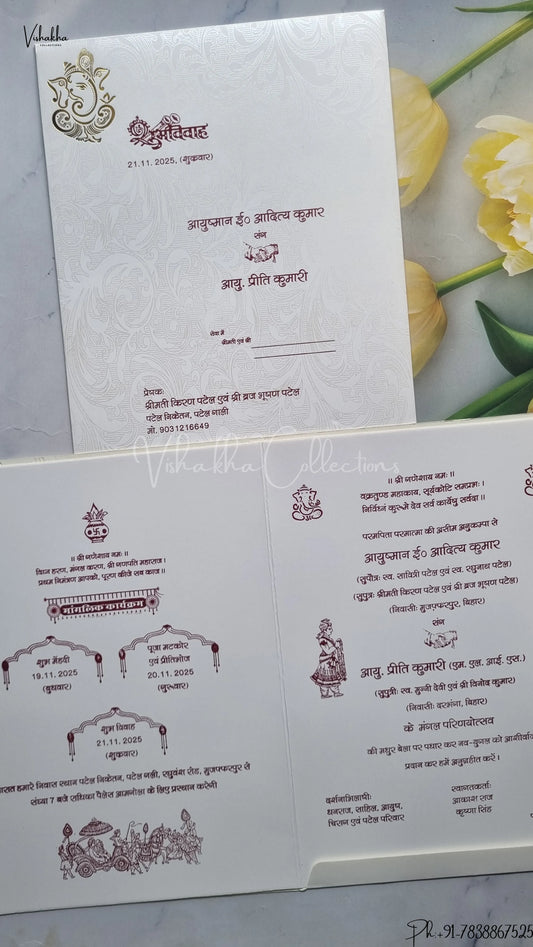 Vishakha
COLLECTIONS
शुभविवाह
21.11. 2025, (शुक्रवार)
आयुष्मान ई० आदित्य कुमार
संग
आयु. प्रीति कुमारी
सेवा में
श्रीमती एवं श्री
प्रेषक:
श्रीमती किरण पटेल एवं श्री ब्रज भूषण पटेल
पटेल निकेतन, पटेल गली
मो. 9031216649
Vishakha Collections
॥ श्री गणेशाय नमः ॥
विघ्न हरण, मंगल करण, श्री गणपति महाराज।
प्रथम निमंत्रण आपको, पूरण कीजे सब काज॥
मांगलिक कार्यक्रम
शुभ मेंहदी
19.11. 2025
(बुधवार)
पूजा मटकोर
एवं प्रीतिभोज
20.11. 2025
(गुरूवार)
शुभ विवाह
21.11. 2025
(शुक्रवार)
हमारे निवास स्थान पटेल निकेतन, पटेल गली, रघुवंश रोड, मुजफ्फरपुर से
संध्या 7 बजे राधिका पैलेस आमगोला के लिए प्रस्थान करेगी
॥ श्री गणेशाय नमः ॥
वक्रतुण्ड महाकाय, सूर्यकोटि समप्रभः।
निर्विघ्नं कुरुमे देव सर्व कार्येषु सर्वदा॥
परमपिता परमात्मा की असीम अनुकम्पा से
आयुष्मान ई० आदित्य कुमार
(सुपौत्रः स्व. सावित्री पटेल एवं स्व. रघुनाथ पटेल)
(सुपुत्रः श्रीमती किरण पटेल एवं श्री ब्रज भूषण पटेल)
(निवासीः मुजफ्फरपुर, बिहार)
संग
आयु. प्रीति कुमारी (एम. एल. आई. एस.)
(सुपुत्रीः स्व. मुन्नी देवी एवं श्री विनोद कुमार)
(निवासीः दरभंगा, बिहार)
के मंगल परिणयोत्सव
की मधुर बेला पर पधार कर नव-युगल को आशीर्वाद
प्रदान कर हमें अनुग्रहीत करें।
दर्शनाभिलाषीः
धनराज, साहिल, आयुष,
चिराग एवं पटेल परिवार
स्वागतकर्ताः
आकाश राज
कृष्णा सिंह
Ph.+91-7838867525